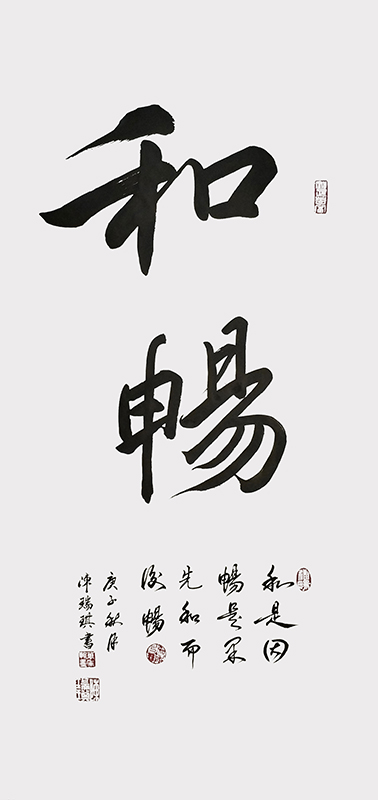 和
暢
和是因
暢是果
先和而
後暢
庚子秋月
瑞琪書